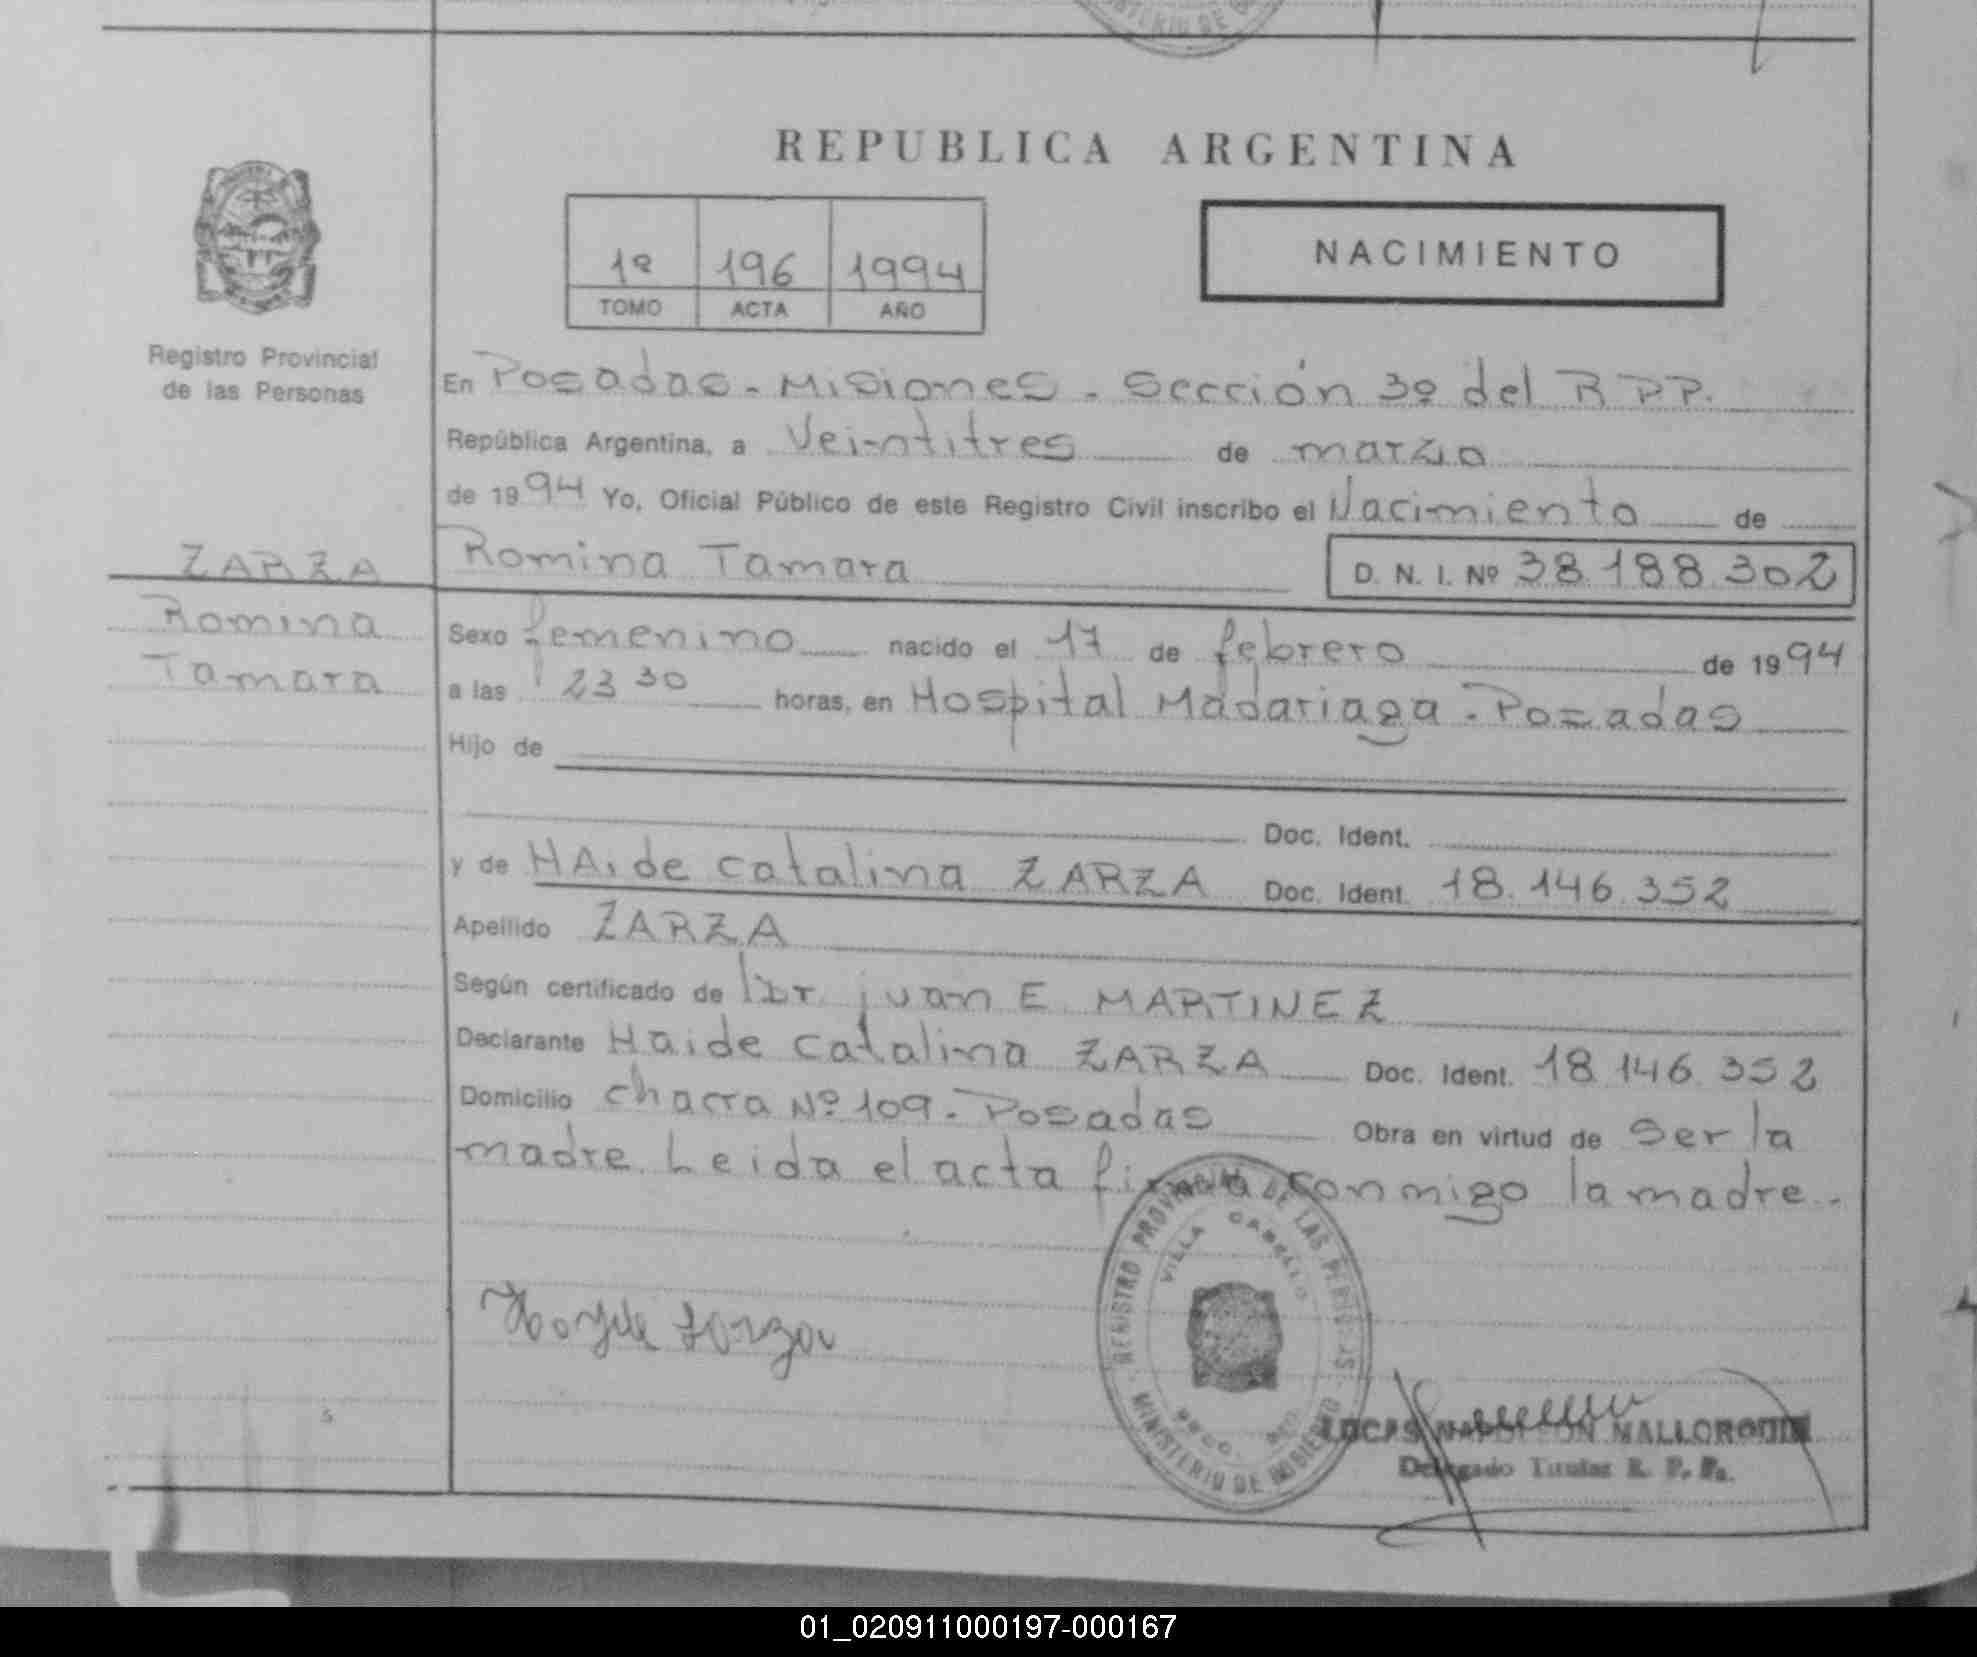 REPUBLICA ARGENTINA
1º 196 1994
TOMO ACTA AÑO
NACIMIENTO
Registro Provincial
de las Personas
ZARZA
Romina
Tamara
En Posadas - Misiones - Sección 3º del R P P.
República Argentina, a Veintitres de marzo
de 1994 Yo, Oficial Público de este Registro Civil inscribo el Nacimiento de
Romina Tamara D. N. I. Nº 38.188.302
Sexo femenino nacido el 17 de febrero de 1994
a las 23 30 horas, en Hospital Madariaga - Posadas
Hijo de
Doc. Ident.
y de HAide catalina ZARZA Doc. Ident. 18.146.352
Apellido ZARZA
Según certificado de Dr. juan E MARTINEZ
Declarante Haide catalina ZARZA Doc. Ident. 18 146 352
Domicilio chacra Nº 109 - Posadas Obra en virtud de ser la
madre. Leida el acta firma conmigo la madre.
REGISTRO PROVINCIAL DE LAS PERSONAS
VILLA CABELLO
MINISTERIO DE GOBIERNO
LUCAS NAPOLEON MALLORQUIN
Delegado Titular R. P. Ps.
01_020911000197-000167